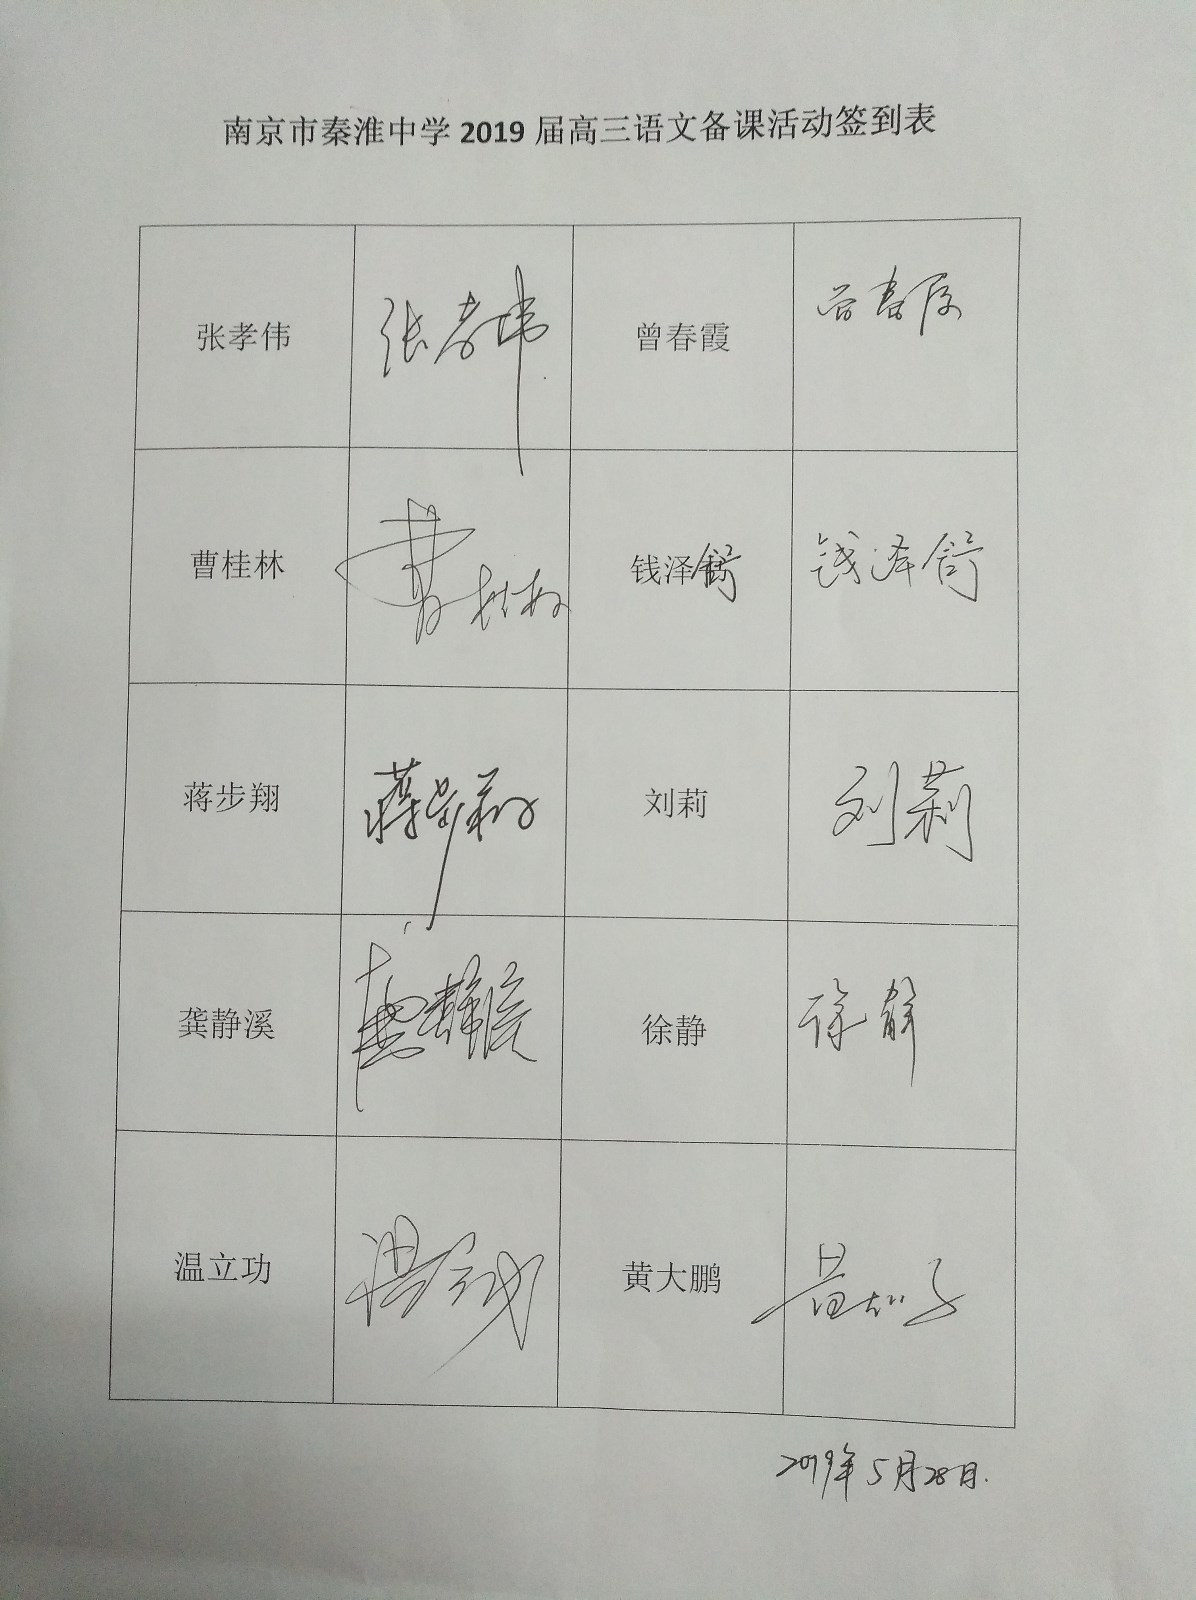 南京市秦淮中学 2019 届高三语文备课活动签到表
张孝伟 张孝伟 曾春霞 曾春霞
曹桂林 曹桂林 钱泽舒 钱泽舒
蒋步翔 蒋步翔 刘莉 刘莉
龚静溪 龚静溪 徐静 徐静
温立功 温立功 黄大鹏 黄大鹏
2019年5月28日.